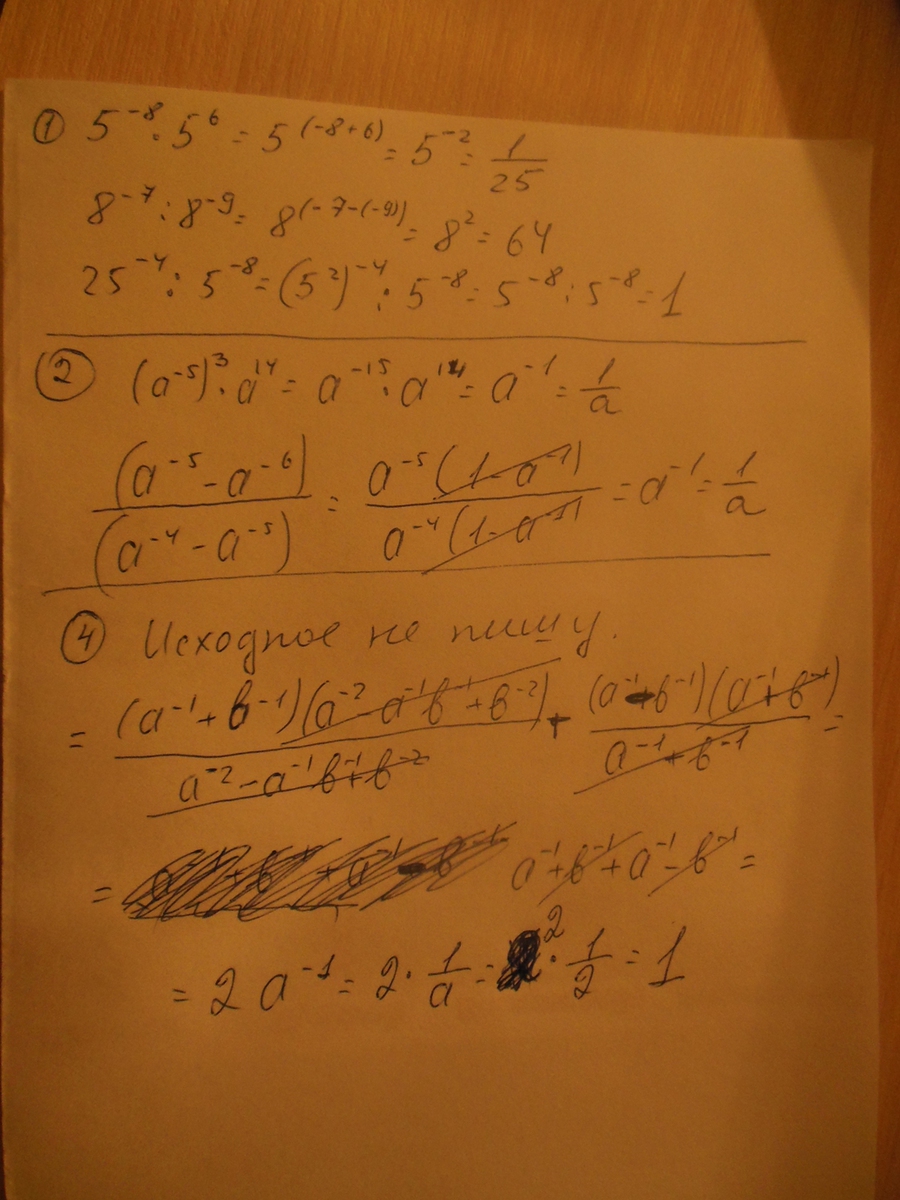 ① 5⁻⁸ · 5⁶ = 5⁽⁻⁸⁺⁶⁾ = 5⁻² = 1/25
8⁻⁷ : 8⁻⁹ = 8⁽⁻⁷⁻⁽⁻⁹⁾⁾ = 8² = 64
25⁻⁴ : 5⁻⁸ = (5²)⁻⁴ : 5⁻⁸ = 5⁻⁸ : 5⁻⁸ = 1
② (a⁻⁵)³ · a¹⁴ = a⁻¹⁵ · a¹⁴ = a⁻¹ = 1/a
(a⁻⁵ - a⁻⁶)/(a⁻⁴ - a⁻⁵) = a⁻⁵(1 - a⁻¹)/a⁻⁴(1 - a⁻¹) = a⁻¹ = 1/a
④ Исходное не пишу.
= (a⁻¹ + b⁻¹)(a⁻² - a⁻¹b⁻¹ + b⁻²)/a⁻² - a⁻¹b⁻¹ + b⁻² + (a⁻¹ - b⁻¹)(a⁻¹ + b⁻¹)/a⁻¹ + b⁻¹ =
= a⁻¹ + b⁻¹ + a⁻¹ - b⁻¹ =
= 2a⁻¹ = 2 · 1/a = 2 · 1/2 = 1